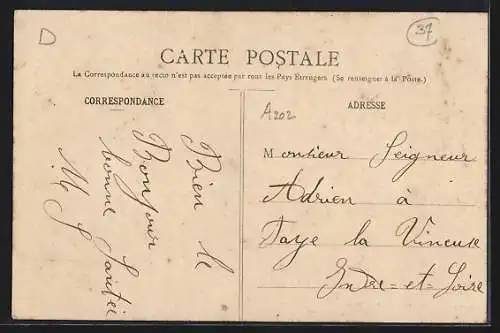 D
37
CARTE POSTALE
La Correspondance au recto n'est pas acceptée par tous les Pays Etrangers (Se renseigner à la Poste.)
CORRESPONDANCE
ADRESSE
A202
Bien le
Bonjour
bonne Santée
M S
Monsieur Seigneur
Adrien à
Faye la Vineuse
Indre=et=Loire